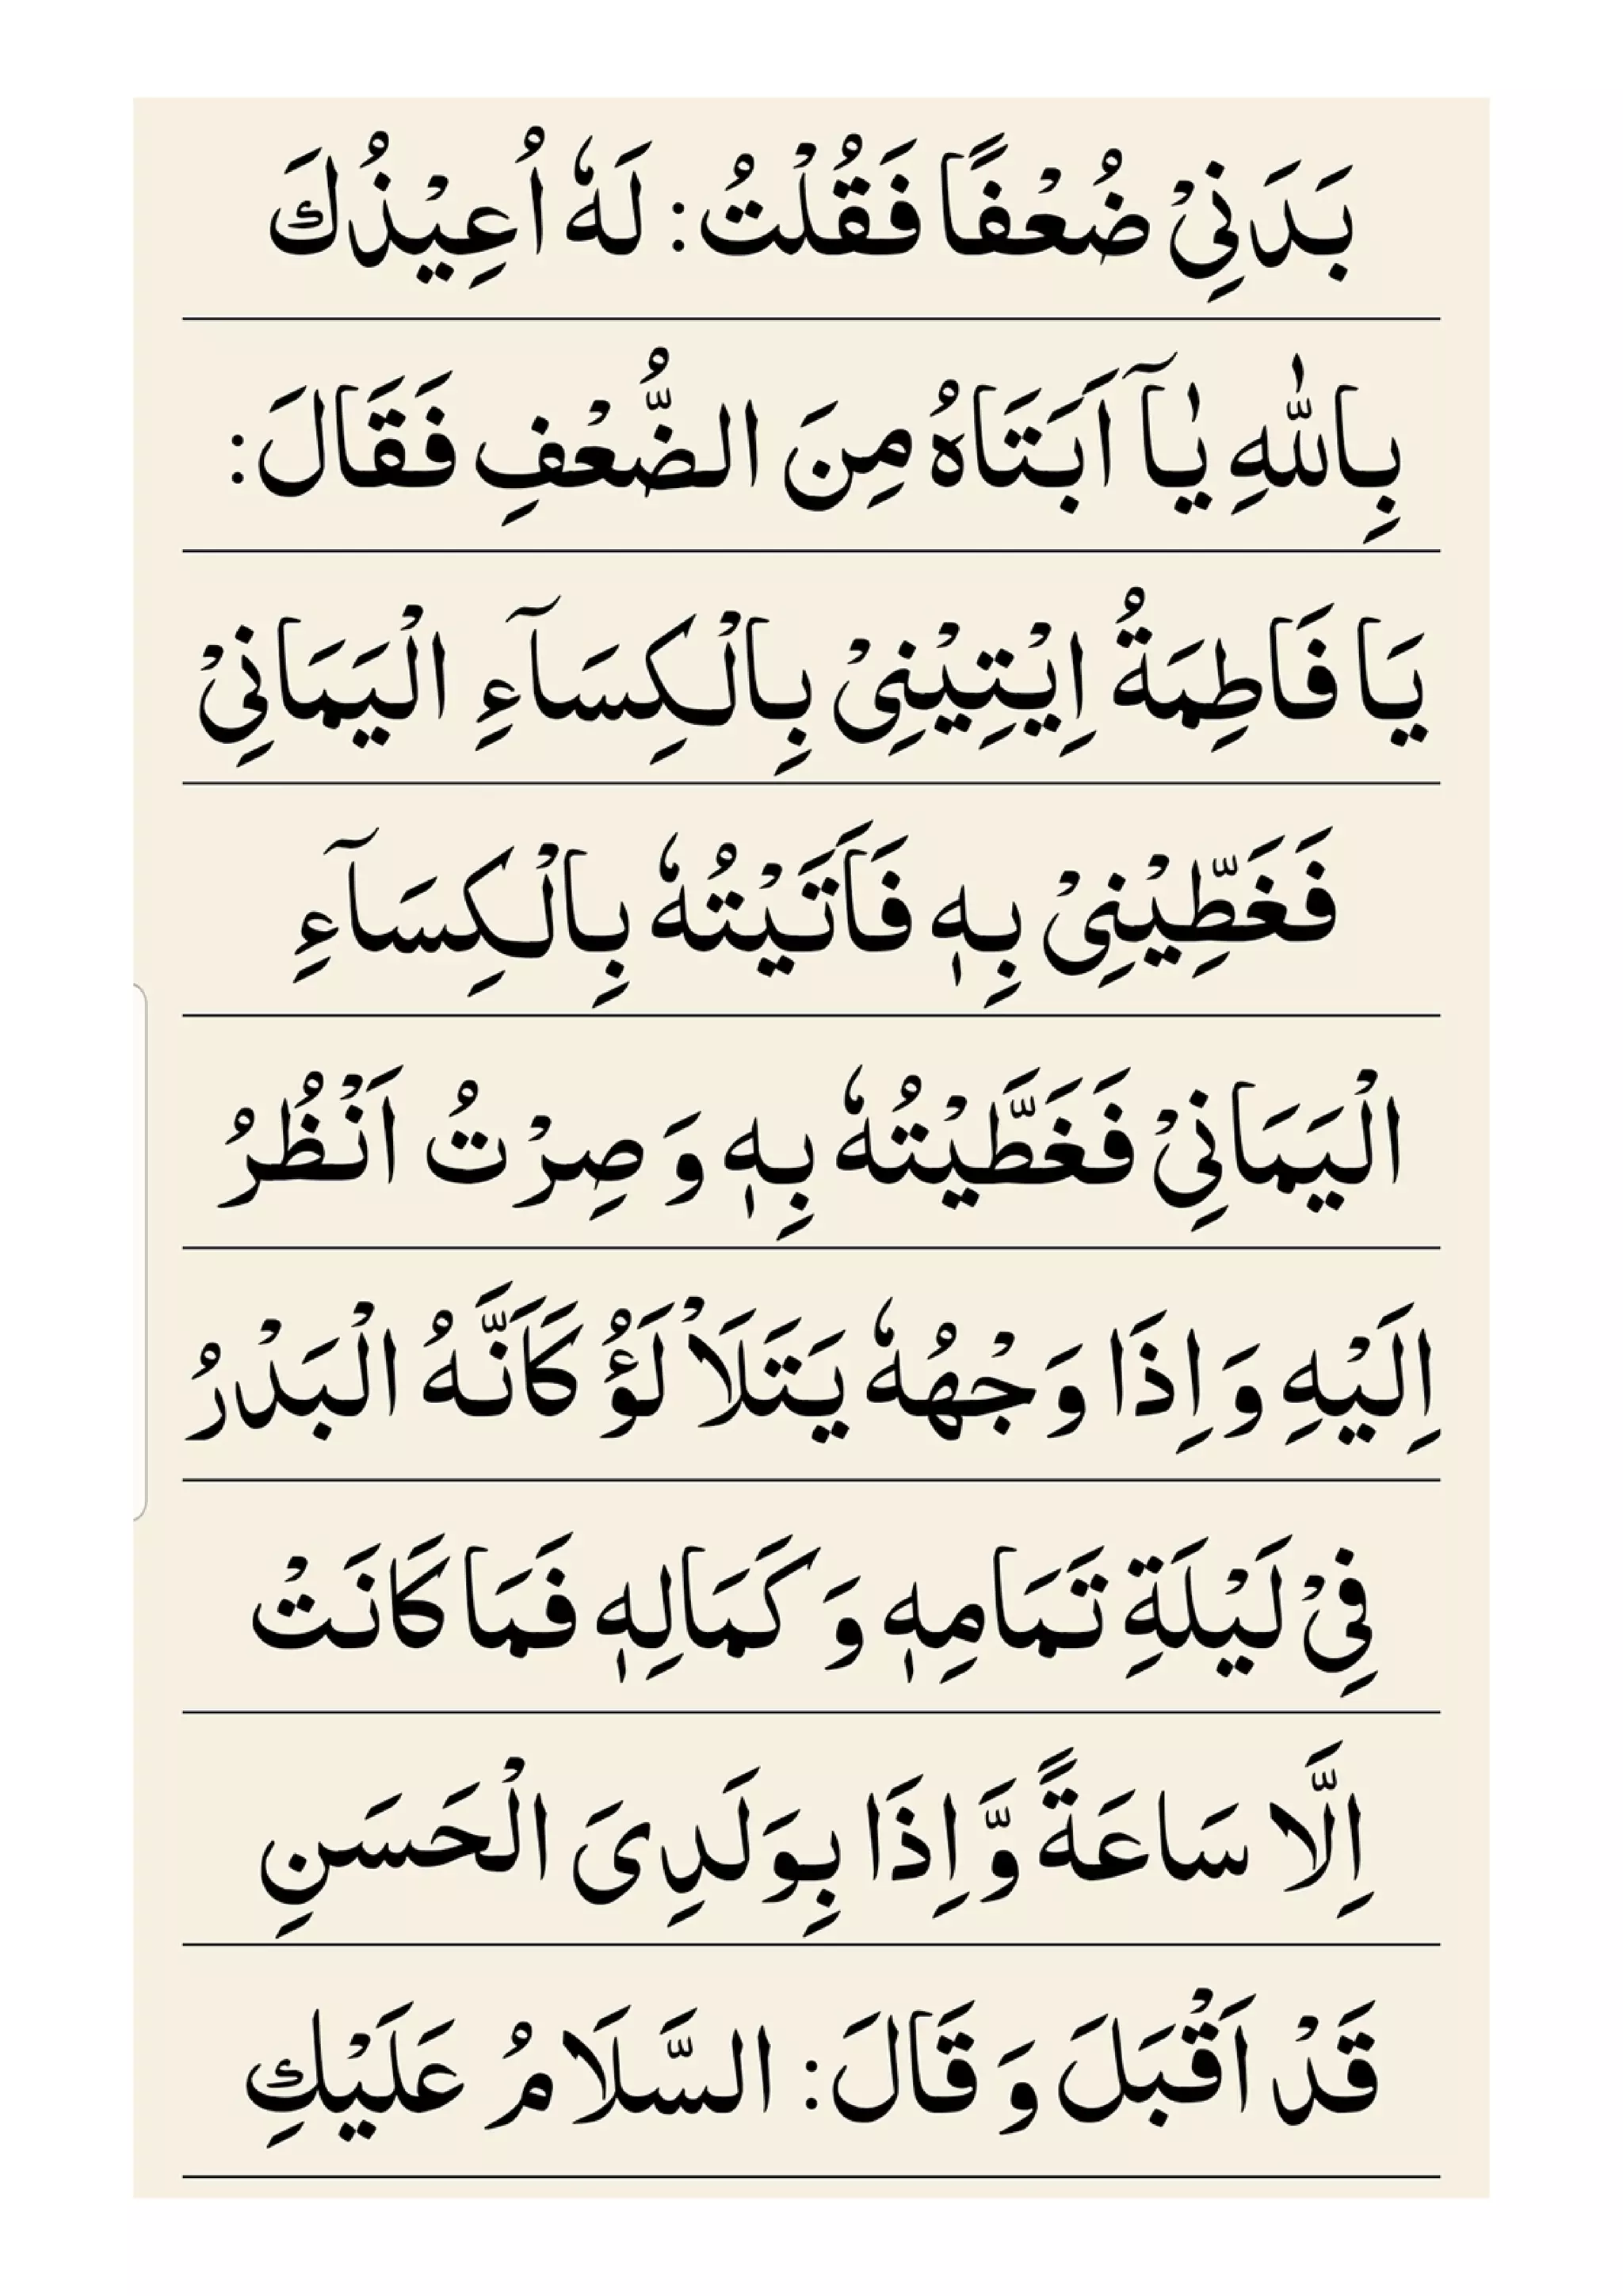 بَدَنِیْ ضُعْفًا فَقُلْتُ: لَهٗ اُعِیْذُكَ
بِاللّٰهِ یٰآ اَبَتَاهُ مِنَ الضُّعْفِ فَقَالَ:
یَا فَاطِمَةُ اِیْتِیْنِیْ بِالْكِسَآءِ الْیَمَانِیْ
فَغَطِّیْنِیْ بِهٖ فَاَتَیْتُهٗ بِالْكِسَآءِ
الْیَمَانِیْ فَغَطَّیْتُهٗ بِهٖ وَ صِرْتُ اَنْظُرُ
اِلَیْهِ وَ اِذَا وَجْهُهٗ یَتَلَاْلَؤُ كَاَنَّهُ الْبَدْرُ
فِیْ لَیْلَةِ تَمَامِهٖ وَ كَمَالِهٖ فَمَا كَانَتْ
اِلَّا سَاعَةً وَّ اِذَا بِوَلَدِیَ الْحَسَنِ
قَدْ اَقْبَلَ وَ قَالَ: السَّلَامُ عَلَیْكِ